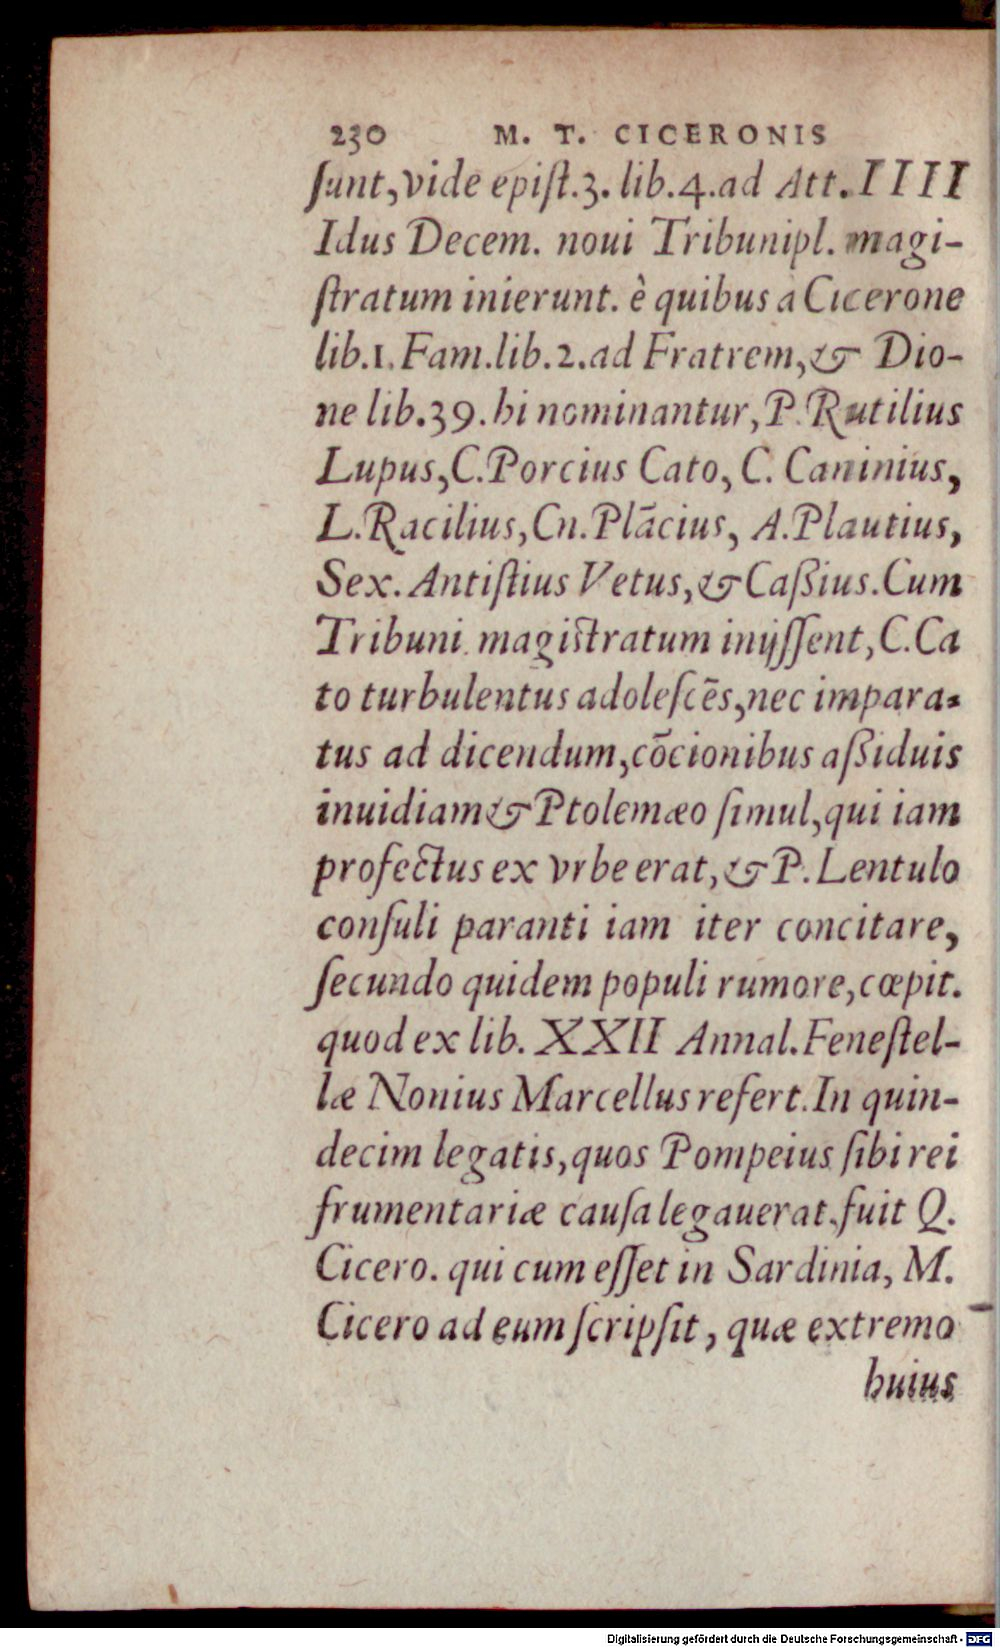 230 M. T. CICERONIS
ſunt, vide epiſt.3. lib.4.ad Att. IIII
Idus Decem. noui Tribunipl. magi-
ſtratum inierunt. è quibus a Cicerone
lib.1. Fam.lib.2.ad Fratrem, & Dio-
ne lib.39. hi nominantur, P. Rutilius
Lupus, C. Porcius Cato, C. Caninius,
L. Racilius, Cn. Plācius, A. Plautius,
Sex. Antiſtius Vetus, & Caßius. Cum
Tribuni magiſtratum inijſſent, C. Ca
to turbulentus adoleſcēs, nec impara-
tus ad dicendum, cōcionibus aßiduis
inuidiam & Ptolemæo ſimul, qui iam
profectus ex vrbe erat, & P. Lentulo
conſuli paranti iam iter concitare,
ſecundo quidem populi rumore, cœpit.
quod ex lib. XXII Annal. Feneſtel-
læ Nonius Marcellus refert. In quin-
decim legatis, quos Pompeius ſibi rei
frumentariæ cauſa legauerat, fuit Q.
Cicero. qui cum eſſet in Sardinia, M.
Cicero ad eum ſcripſit, quæ extremo
huius
Digitalisierung gefördert durch die Deutsche Forschungsgemeinschaft - DFG